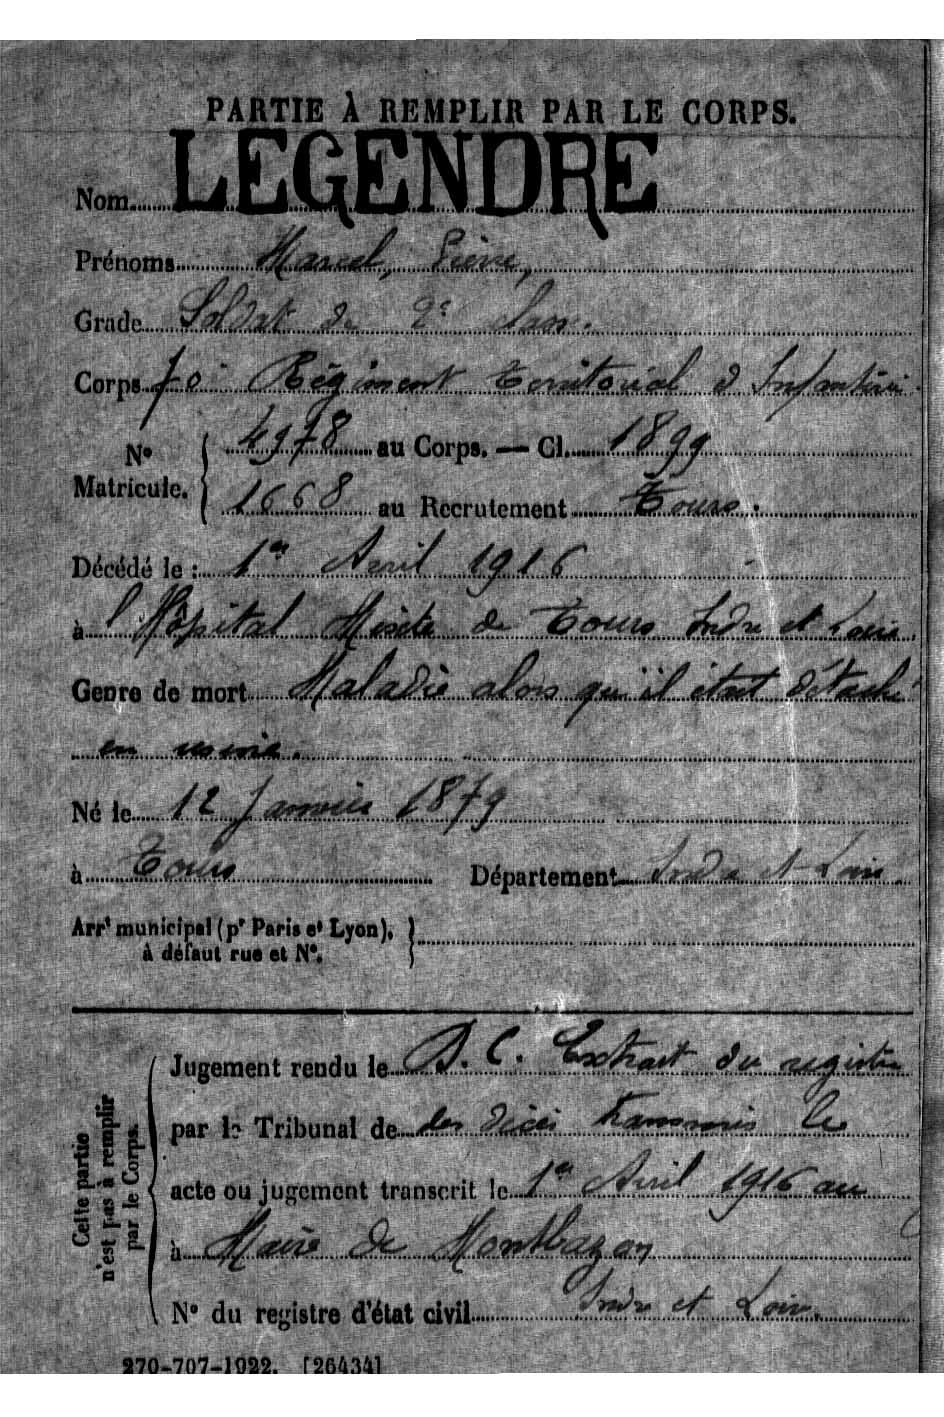 PARTIE À REMPLIR PAR LE CORPS.
Nom LEGENDRE
Prénoms Marcel, Pierre,
Grade Soldat de 2e classe.
Corps 70e Régiment Territorial d'Infanterie.
No Matricule. { 4978 au Corps. — Cl. 1899
1668 au Recrutement Tours.
Décédé le : 1er Avril 1916
à l'Hôpital Mixte de Tours Indre et Loire.
Genre de mort Maladie alors qu'il était détaché
en usine.
Né le 12 Janvier 1879
à Tours Département Indre et Loire.
Arrt municipal (pr Paris et Lyon), }
à défaut rue et No.
Cette partie n'est pas à remplir par le Corps.
Jugement rendu le D. C. Extrait du registre
par le Tribunal de des décès transmis le
acte ou jugement transcrit le 1er Avril 1916 au
à Maire de Montbazon
No du registre d'état civil Indre et Loire.
270-707-1922. [26434]